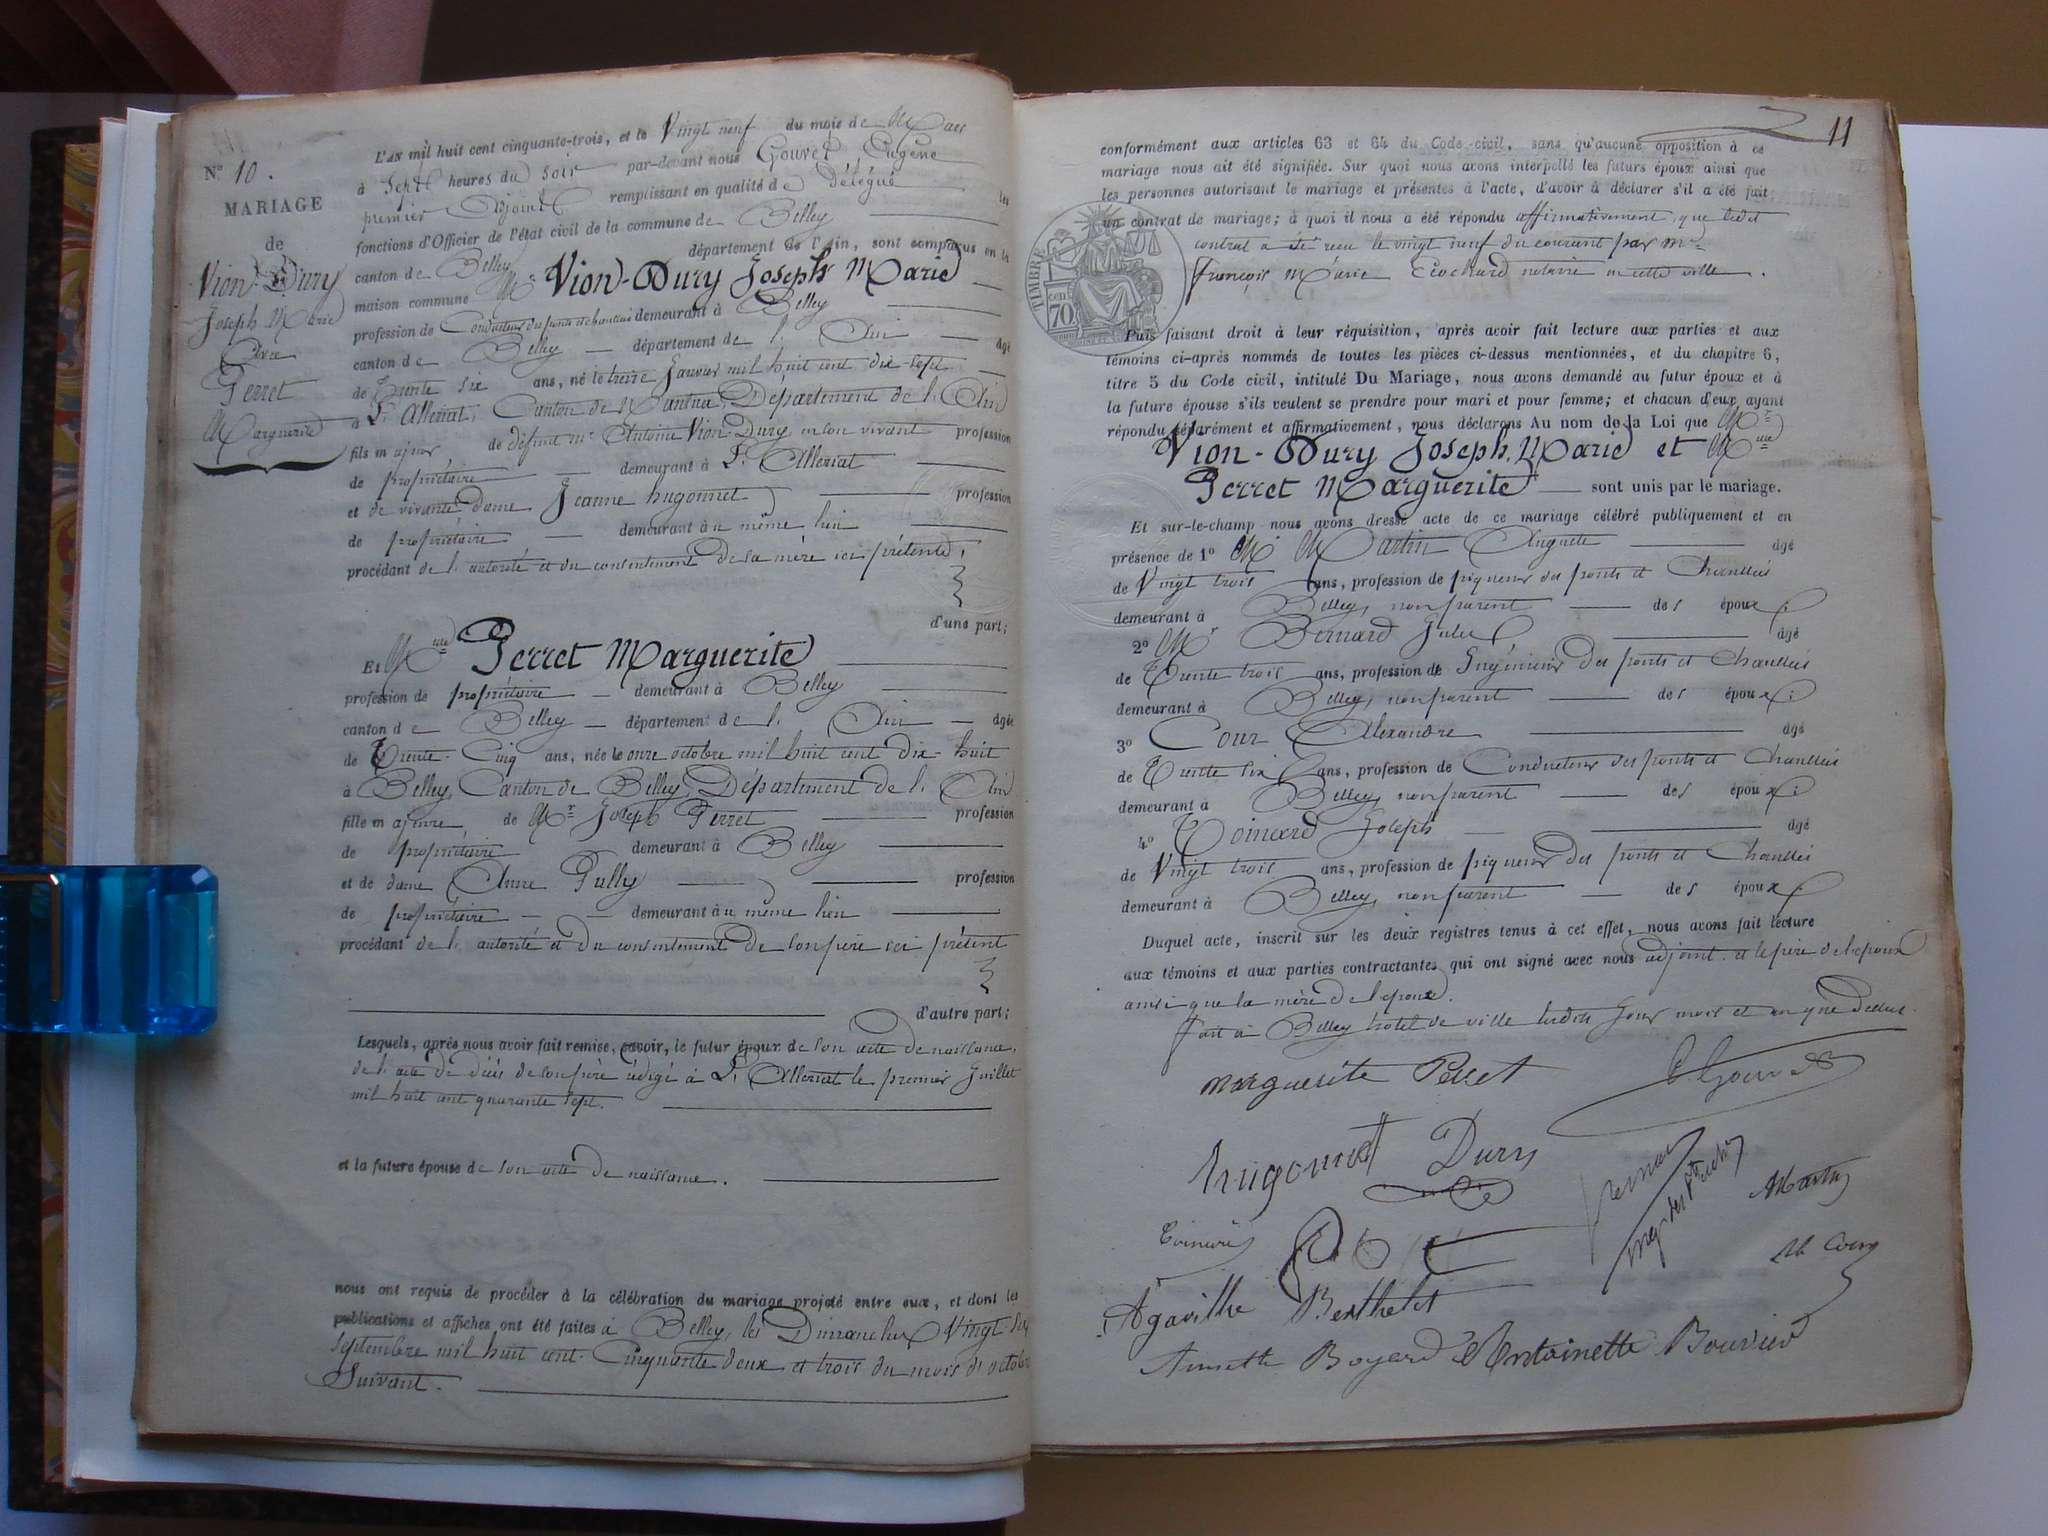 N° 10.
MARIAGE
de
Vion-Dury
Joseph Marie
Avec
Perret
Marguerite
L'AN mil huit cent cinquante-trois, et le Vingt neuf du mois de Mars
à Sept heures du Soir par-devant nous Gouvet Eugène
premier Adjoint remplissant en qualité de délégué les
fonctions d'Officier de l'état civil de la commune de Belley
canton de Belley département de l'Ain, sont comparus en la
maison commune Mr Vion-Dury Joseph Marie
profession de Conducteur des ponts et chaussées demeurant à Belley
canton de Belley département de l' Ain âgé
de trente six ans, né le treize Janvier mil huit cent dix-sept
à St Alleriat, Canton de Nantua, Département de l'Ain
fils majeur de défunt mr Antoine Vion-Dury en son vivant profession
de propriétaire demeurant à St Alleriat
et de vivante dame Jeanne hugonnet profession
de propriétaire demeurant à u même lieu
procédant de l'autorité et du consentement de sa mère ici présente,
d'une part;
Et Mlle Perret Marguerite
profession de propriétaire demeurant à Belley
canton de Belley département de l' Ain âgée
de Trente-Cinq ans, née le onze octobre mil huit cent dix-huit
à Belley, Canton de Belley, Département de l'Ain
fille majeure de Mr Joseph Perret profession
de propriétaire demeurant à Belley
et de dame Anne Pully profession
de propriétaire demeurant à u même lieu
procédant de l'autorité et du consentement de son père ici présent
d'autre part;
Lesquels, après nous avoir fait remise, savoir, le futur époux de son acte de naissance,
de l'acte de décès de son père rédigé à St Alleriat le premier Juillet
mil huit cent quarante sept.
et la future épouse de son acte de naissance.
nous ont requis de procéder à la célébration du mariage projeté entre eux, et dont les
publications et affiches ont été faites à Belley, les Dimanches Vingt six
septembre mil huit cent Cinquante deux et trois du mois d'octobre
Suivant.
11
conformément aux articles 63 et 64 du Code civil, sans qu'aucune opposition à ce
mariage nous ait été signifiée. Sur quoi nous avons interpellé les futurs époux ainsi que
les personnes autorisant le mariage et présentes à l'acte, d'avoir à déclarer s'il a été fait
un contrat de mariage; à quoi il nous a été répondu affirmativement, que ledit
contrat a été reçu le vingt neuf du courant par mr
françois Marie Ecochard notaire en cette ville.
TIMBRE
cent
70
Puis faisant droit à leur réquisition, après avoir fait lecture aux parties et aux
témoins ci-après nommés de toutes les pièces ci-dessus mentionnées, et du chapitre 6,
titre 5 du Code civil, intitulé Du Mariage, nous avons demandé au futur époux et à
la future épouse s'ils veulent se prendre pour mari et pour femme; et chacun d'eux ayant
répondu séparément et affirmativement, nous déclarons Au nom de la Loi que Mr
Vion-Dury Joseph Marie et Mlle
Perret Marguerite sont unis par le mariage.
Et sur-le-champ nous avons dressé acte de ce mariage célébré publiquement et en
présence de 1° Mr Martin Auguste âgé
de Vingt trois ans, profession de piqueur des ponts et Chaussées
demeurant à Belley, non parent des époux;
2° Mr Bernard Jules âgé
de Trente trois ans, profession de Ingénieur des ponts et Chaussées
demeurant à Belley, non parent des époux;
3° Cour Alexandre âgé
de Trente six ans, profession de Conducteur des ponts et Chaussées
demeurant à Belley, non parent des époux;
4° Toinard Joseph âgé
de Vingt trois ans, profession de piqueur des ponts et Chaussées
demeurant à Belley, non parent des époux;
Duquel acte, inscrit sur les deux registres tenus à cet effet, nous avons fait lecture
aux témoins et aux parties contractantes qui ont signé avec nous adjoint et le père de l'epouse
ainsi que la mère de l'epoux.
fait à Belley hotel de ville lesdits Jour mois et an que Dessus.
Marguerite Perret E Gouvet
hugonnet Dury
AMartin
Toinard
Al Cour
Agavithe Berthelet
Annette Boyard Antoinette Bouvier